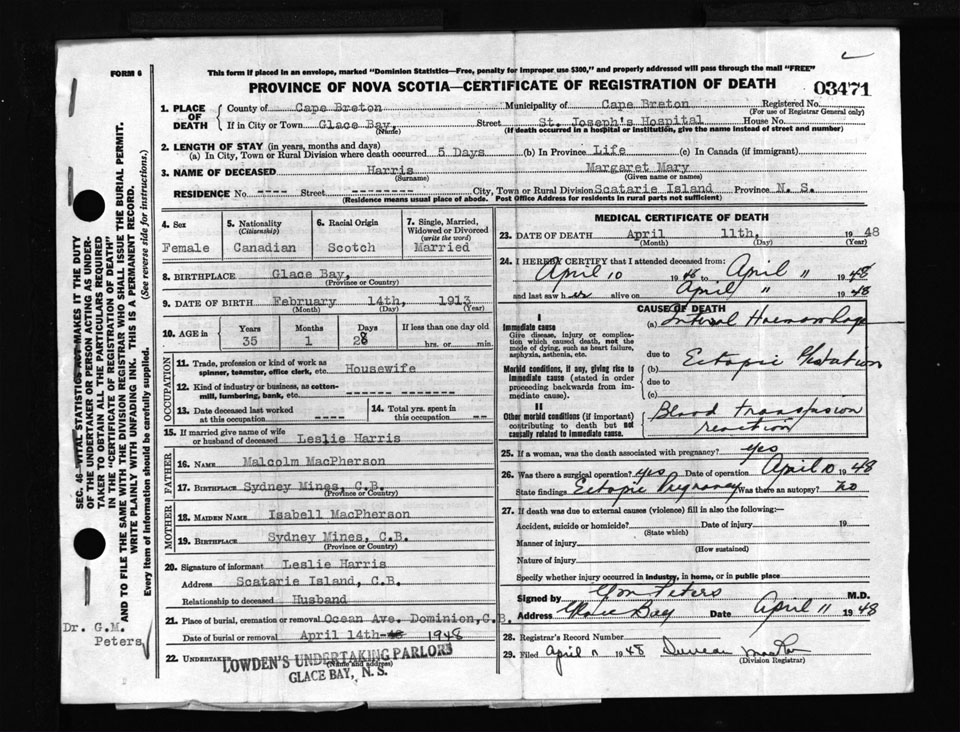 FORM 6
This form if placed in an envelope, marked "Dominion Statistics—Free, penalty for improper use $300," and properly addressed will pass through the mail "FREE"
PROVINCE OF NOVA SCOTIA—CERTIFICATE OF REGISTRATION OF DEATH
03471
1. PLACE OF DEATH
County of Cape Breton Municipality of Cape Breton Registered No.
(For use of Registrar General only)
If in City or Town Glace Bay, Street St. Joseph's Hospital House No.
(Name) (If death occurred in a hospital or institution, give the name instead of street and number)
2. LENGTH OF STAY (in years, months and days)
(a) In City, Town or Rural Division where death occurred 5 Days (b) In Province Life (c) In Canada (if immigrant)
3. NAME OF DECEASED Harris Margaret Mary
(Surname) (Given name or names)
RESIDENCE No. ---- Street -------- City, Town or Rural Division Scatarie Island Province N. S.
(Residence means usual place of abode. Post Office Address for residents in rural parts not sufficient)
4. Sex
Female
5. Nationality
(Citizenship)
Canadian
6. Racial Origin
Scotch
7. Single, Married, Widowed or Divorced
(write the word)
Married
8. BIRTHPLACE Glace Bay,
(Province or Country)
9. DATE OF BIRTH February 14th, 1913
(Month) (Day) (Year)
10. AGE in Years Months Days If less than one day old
35 1 28 hrs. or min.
OCCUPATION
11. Trade, profession or kind of work as spinner, teamster, office clerk, etc. Housewife
12. Kind of industry or business, as cotton-mill, lumbering, bank, etc.
13. Date deceased last worked at this occupation ----
14. Total yrs. spent in this occupation --
15. If married give name of wife or husband of deceased Leslie Harris
FATHER
16. NAME Malcolm MacPherson
17. BIRTHPLACE Sydney Mines, C.B.
(Province or Country)
MOTHER
18. MAIDEN NAME Isabell MacPherson
19. BIRTHPLACE Sydney Mines, C.B.
(Province or Country)
20. Signature of informant Leslie Harris
Address Scatarie Island, C.B.
Relationship to deceased Husband
21. Place of burial, cremation or removal Ocean Ave. Dominion, C.B.
Date of burial or removal April 14th- 1948
22. UNDERTAKER
(Name and address)
LOWDEN'S UNDERTAKING PARLORS
GLACE BAY, N. S.
MEDICAL CERTIFICATE OF DEATH
23. DATE OF DEATH April 11th, 1948
(Month) (Day) (Year)
24. I HEREBY CERTIFY that I attended deceased from:
April 10 1948 to April 11 1948
and last saw her alive on April 11 1948
CAUSE OF DEATH
I
Immediate cause
Give disease, injury or complication which caused death, not the mode of dying, such as heart failure, asphyxia, asthenia, etc.
(a) Internal Haemorrhage
due to
Morbid conditions, if any, giving rise to immediate cause (stated in order proceeding backwards from immediate cause).
(b) Ectopic Gestation
due to
(c)
II
Other morbid conditions (if important) contributing to death but not causally related to immediate cause.
Blood transfusion reaction
25. If a woman, was the death associated with pregnancy? yes
26. Was there a surgical operation? yes Date of operation April 10 1948
State findings Ectopic Pregnancy Was there an autopsy? no
27. If death was due to external causes (violence) fill in also the following:—
Accident, suicide or homicide? Date of injury 19
(State which)
Manner of injury
(How sustained)
Nature of injury
Specify whether injury occurred in industry, in home, or in public place
Signed by Gm Peters M.D.
Address Glace Bay Date April 11 1948
28. Registrar's Record Number
29. Filed April 1948 Duncan
(Division Registrar)
SEC. 46—VITAL STATISTICS ACT MAKES IT THE DUTY OF THE UNDERTAKER OR PERSON ACTING AS UNDERTAKER TO OBTAIN ALL THE PARTICULARS REQUIRED IN THE "CERTIFICATE OF REGISTRATION OF DEATH"
AND TO FILE THE SAME WITH THE DIVISION REGISTRAR WHO SHALL ISSUE THE BURIAL PERMIT.
WRITE PLAINLY WITH UNFADING INK. THIS IS A PERMANENT RECORD.
Every item of information should be carefully supplied. (See reverse side for instructions.)
Dr. G.M. Peters